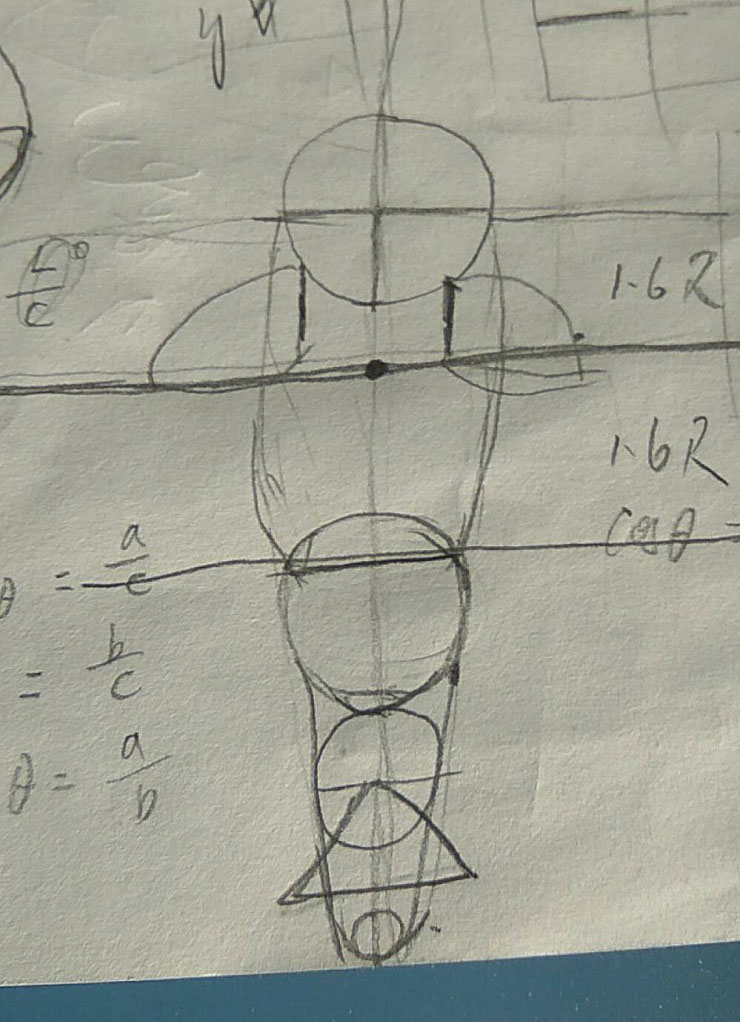 y
c
1.6R
1.6R
cos θ =
θ = a/c
= b/c
θ = a/b